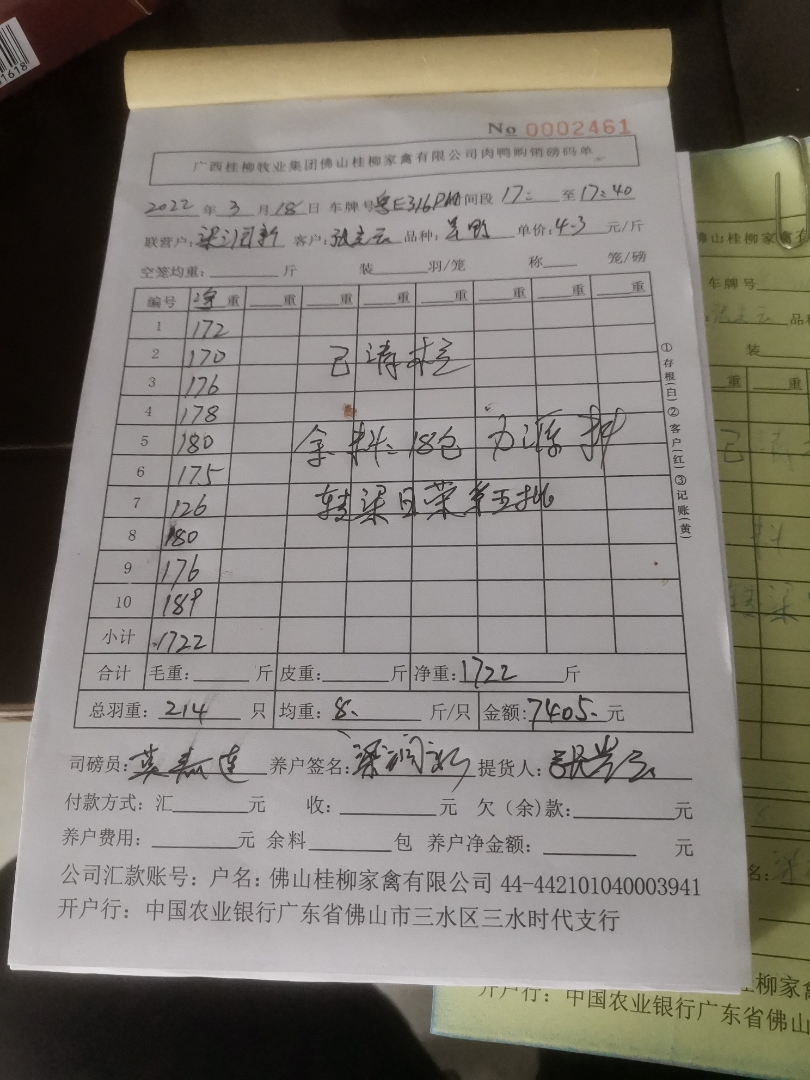 1618
No 0002461
广西桂柳牧业集团佛山桂柳家禽有限公司肉鸭购销磅码单
2022年3月18日 车牌号粤E316PM 间段17: 至17:40
联营户:梁润新 客户:张兴云 品种: 单价:4.3元/斤
空笼均重: 斤 装 羽/笼 称 笼/磅
编号 净重 重 重 重 重 重 重 重
1 172
2 170 已清栏
3 176
4 178
5 180 余料:18包
6 175
7 126 转梁日荣第五批
8 180
9 176
10 189
小计 1722
合计 毛重: 斤 皮重: 斤 净重:1722斤
总羽重:214只 均重:8.斤/只 金额:7405.元
司磅员: 养户签名:梁润新 提货人:张兴云
付款方式:汇 元 收: 元 欠(余)款: 元
养户费用: 元 余料 包 养户净金额: 元
公司汇款账号:户名:佛山桂柳家禽有限公司 44-442101040003941
开户行:中国农业银行广东省佛山市三水区三水时代支行
①存根(白)②客户(红)③记账(黄)
佛山桂柳家禽有
车牌号
张兴云 品种
装
重 重
已清
料
转梁
名:梁
桂柳家禽
开户行:中国农业银行广东省佛山